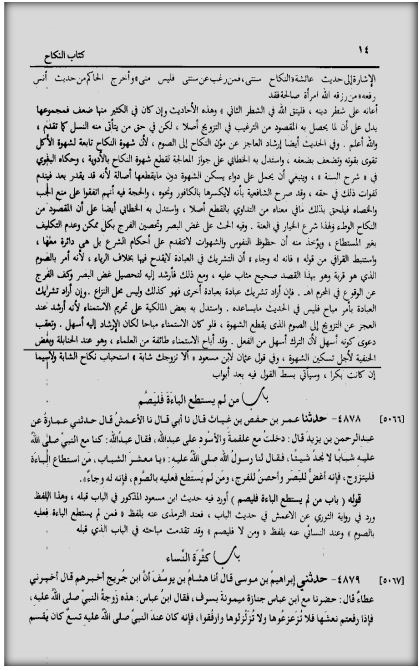 ١٤
كتاب النكاح
الإشارة إلى حديث عائشة «النكاح سنتى، فمن رغب عن سنتى فليس منى» وأخرج الحاكم من حديث أنس
رفعه «من رزقه الله امرأة صالحة فقد
أعانه على شطر دينه ، فليتق الله فى الشطر الثانى » وهذه الأحاديث وإن كان فى الكثير منها ضعف فمجموعها
يدل على أن لما يحصل به المقصود من الترغيب فى التزويج أصلا ، لكن فى حق من يتأتى منه النسل كما تقدم ،
والله أعلم . وفى الحديث أيضا إرشاد العاجز عن مؤن النكاح إلى الصوم ، لأن شهوة النكاح تابعة لشهوة الأكل
تقوى بقوته وتضعف بضعفه ، واستدل به الخطابى على جواز المعالجة لقطع شهوة النكاح بالأدوية ، وحكاه البغوى
فى « شرح السنة » ، وينبغى أن يحمل على دواء يسكن الشهوة دون مايقطعها أصالة لأنه قد يقدر بعد فيندم
لفوات ذلك فى حقه ، وقد صرح الشافعية بأنه لايكسرها بالكافور ونحوه ، والحجة فيه أنهم اتفقوا على منع الجب
والخصاء فيلحق بذلك مافى معناه من التداوى بالقطع أصلا ، واستدل به الخطابى أيضا على أن المقصود من
النكاح الوطء ولهذا شرع الخيار فى العنة . وفيه الحث على غض البصر وتحصين الفرج بكل ممكن وعدم التكليف
بغير المستطاع ، ويؤخذ منه أن حظوظ النفوس والشهوات لاتتقدم على أحكام الشرع بل هى دائرة معها ،
واستنبط القرافى من قوله « فإنه له وجاء » أن التشريك فى العبادة لايقدح فيها بخلاف الرياء ، لأنه أمر بالصوم
الذى هو قربة وهو بهذا القصد صحيح مثاب عليه ، ومع ذلك فأرشد إليه لتحصيل غض البصر وكف الفرج
عن الوقوع فى المحرم اهـ . فإن أراد تشريك عبادة بعبادة أخرى فهو كذلك وليس محل النزاع . وإن أراد تشريك
العبادة بأمر مباح فليس فى الحديث مايساعده . واستدل به بعض المالكية على تحريم الاستمناء لأنه أرشد عند
العجز عن التزويج إلى الصوم الذى يقطع الشهوة ، فلو كان الاستمناء مباحا لكان الإرشاد إليه أسهل . وتعقب
دعوى كونه أسهل لأن الترك أسهل من الفعل . وقد أباح الاستمناء طائفة من العلماء ، وهو عند الحنابلة وبعض
الحنفية لأجل تسكين الشهوة ، وفى قول عثمان لابن مسعود « ألا نزوجك شابة » استحباب نكاح الشابة ولاسيما
إن كانت بكرا ، وسيأتى بسط القول فيه بعد أبواب
باب من لم يستطع الباءة فليصم
[٥٠٦٦] ٤٨٧٨- حدثنا عمر بن حفص بن غياث قال نا أبى قال نا الأعمش قال حدثنى عمارة عن
عبدالرحمن بن يزيد قال: دخلت مع علقمة والأسود على عبدالله، فقال عبدالله: كنا مع النبى صلى الله
عليه شبابا لا نجد شيئا، فقال لنا رسول الله صلى الله عليه: «يا معشر الشباب، من استطاع الباءة
فليتزوج، فإنه أغض للبصر وأحصن للفرج، ومن لم يستطع فعليه بالصوم، فإنه له وجاء».
قوله ( باب من لم يستطع الباءة فليصم ) أورد فيه حديث ابن مسعود المذكور فى الباب قبله ، وهذا اللفظ
ورد فى رواية الثورى عن الأعمش فى حديث الباب ، فعند الترمذى عنه بلفظ « فمن لم يستطع الباءة فعليه
بالصوم » وعند النسائى عنه بلفظ « ومن لا فليصم » وقد تقدمت مباحثه فى الباب الذى قبله
باب كثرة النساء
[٥٠٦٧] ٤٨٧٩- حدثنى إبراهيم بن موسى قال أنا هشام بن يوسف أن ابن جريج أخبرهم قال أخبرنى
عطاء قال: حضرنا مع ابن عباس جنازة ميمونة بسرف، فقال ابن عباس: هذه زوجة النبى صلى الله عليه،
فإذا رفعتم نعشها فلا تزعزعوها ولا تزلزلوها وارفقوا، فإنه كان عند النبى صلى الله عليه تسع كان يقسم